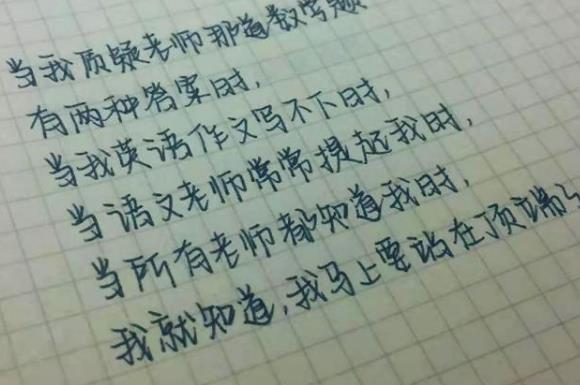 当我质疑老师那道数学题
有两种答案时,
当我英语作文写不下时,
当语文老师常常提起我时,
当所有老师都知道我时,
我就知道,我马上要站在顶端